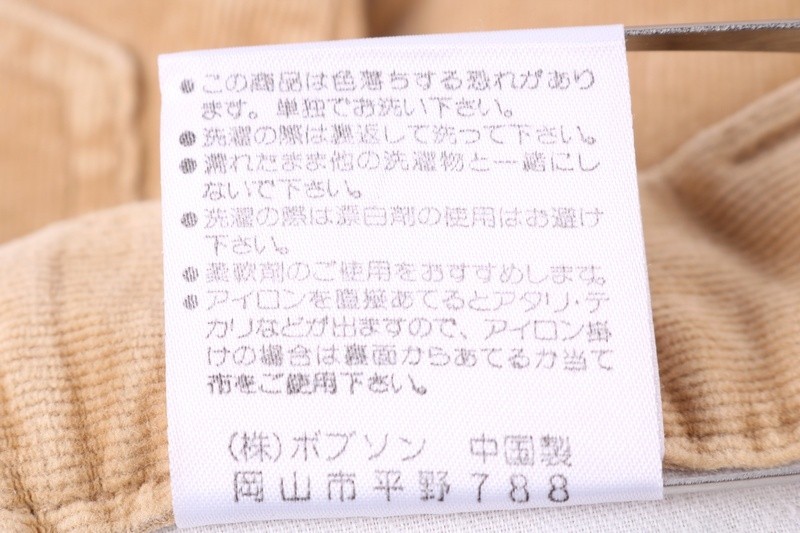 ●この商品は色落ちする恐れがあり
ます。単独でお洗い下さい。
●洗濯の際は裏返して洗って下さい。
●濡れたまま他の洗濯物と一緒にし
ないで下さい。
●洗濯の際は漂白剤の使用はお避け
下さい。
●柔軟剤のご使用をおすすめします。
●アイロンを直接あてるとアタリ・テ
カリなどが出ますので、アイロン掛
けの場合は裏面からあてるか当て
布をご使用下さい。
(株)ボブソン 中国製
岡山市平野788